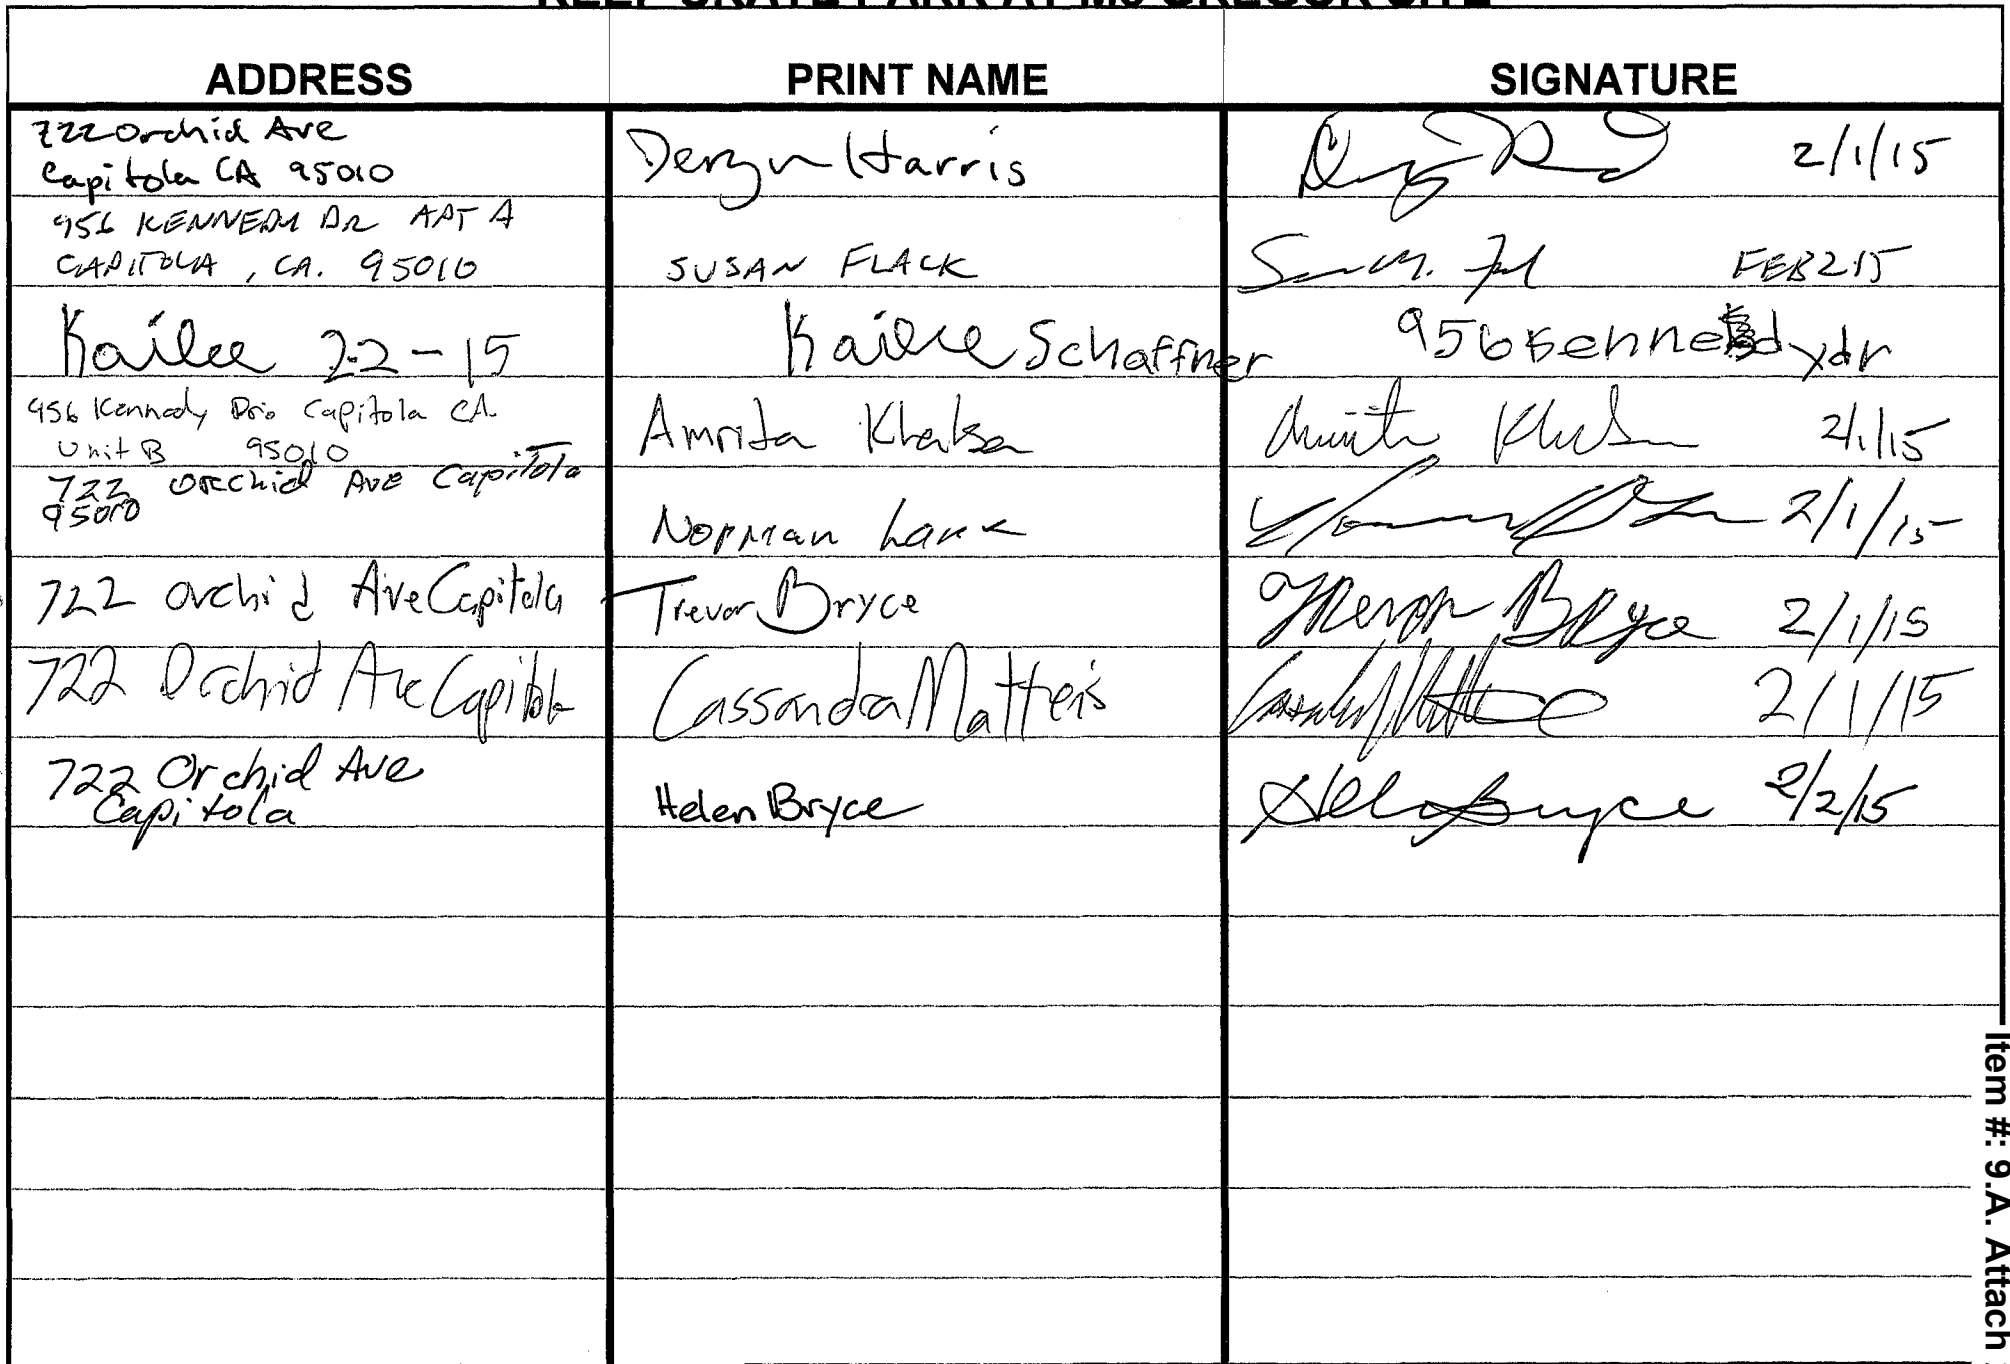 KEEP SKATE PARK AT MC GREGOR SITE
ADDRESS PRINT NAME SIGNATURE
722 Orchid Ave
Capitola CA 95010
Deryn Harris
2/1/15
956 KENNEDY DR APT A
CAPITOLA , CA. 95010
SUSAN FLACK
FEB 2 15
Kailee 2-2-15
Kailee Schaffner
956 Kennedy dr
456 Kennedy Capitola CA
Unit B 95010
Amrita Khalsa
Amrita Khalsa 2/1/15
722 Orchid Ave Capitola
95010
Norman
2/1/15
722 orchid Ave Capitola
Trevor Bryce
Trevor Bryce 2/1/15
722 Orchid Ave Capitola
Cassandra Mattheis
2/1/15
722 Orchid Ave
Capitola
Helen Bryce
Helen Bryce 2/2/15
Item #: 9.A. Attach